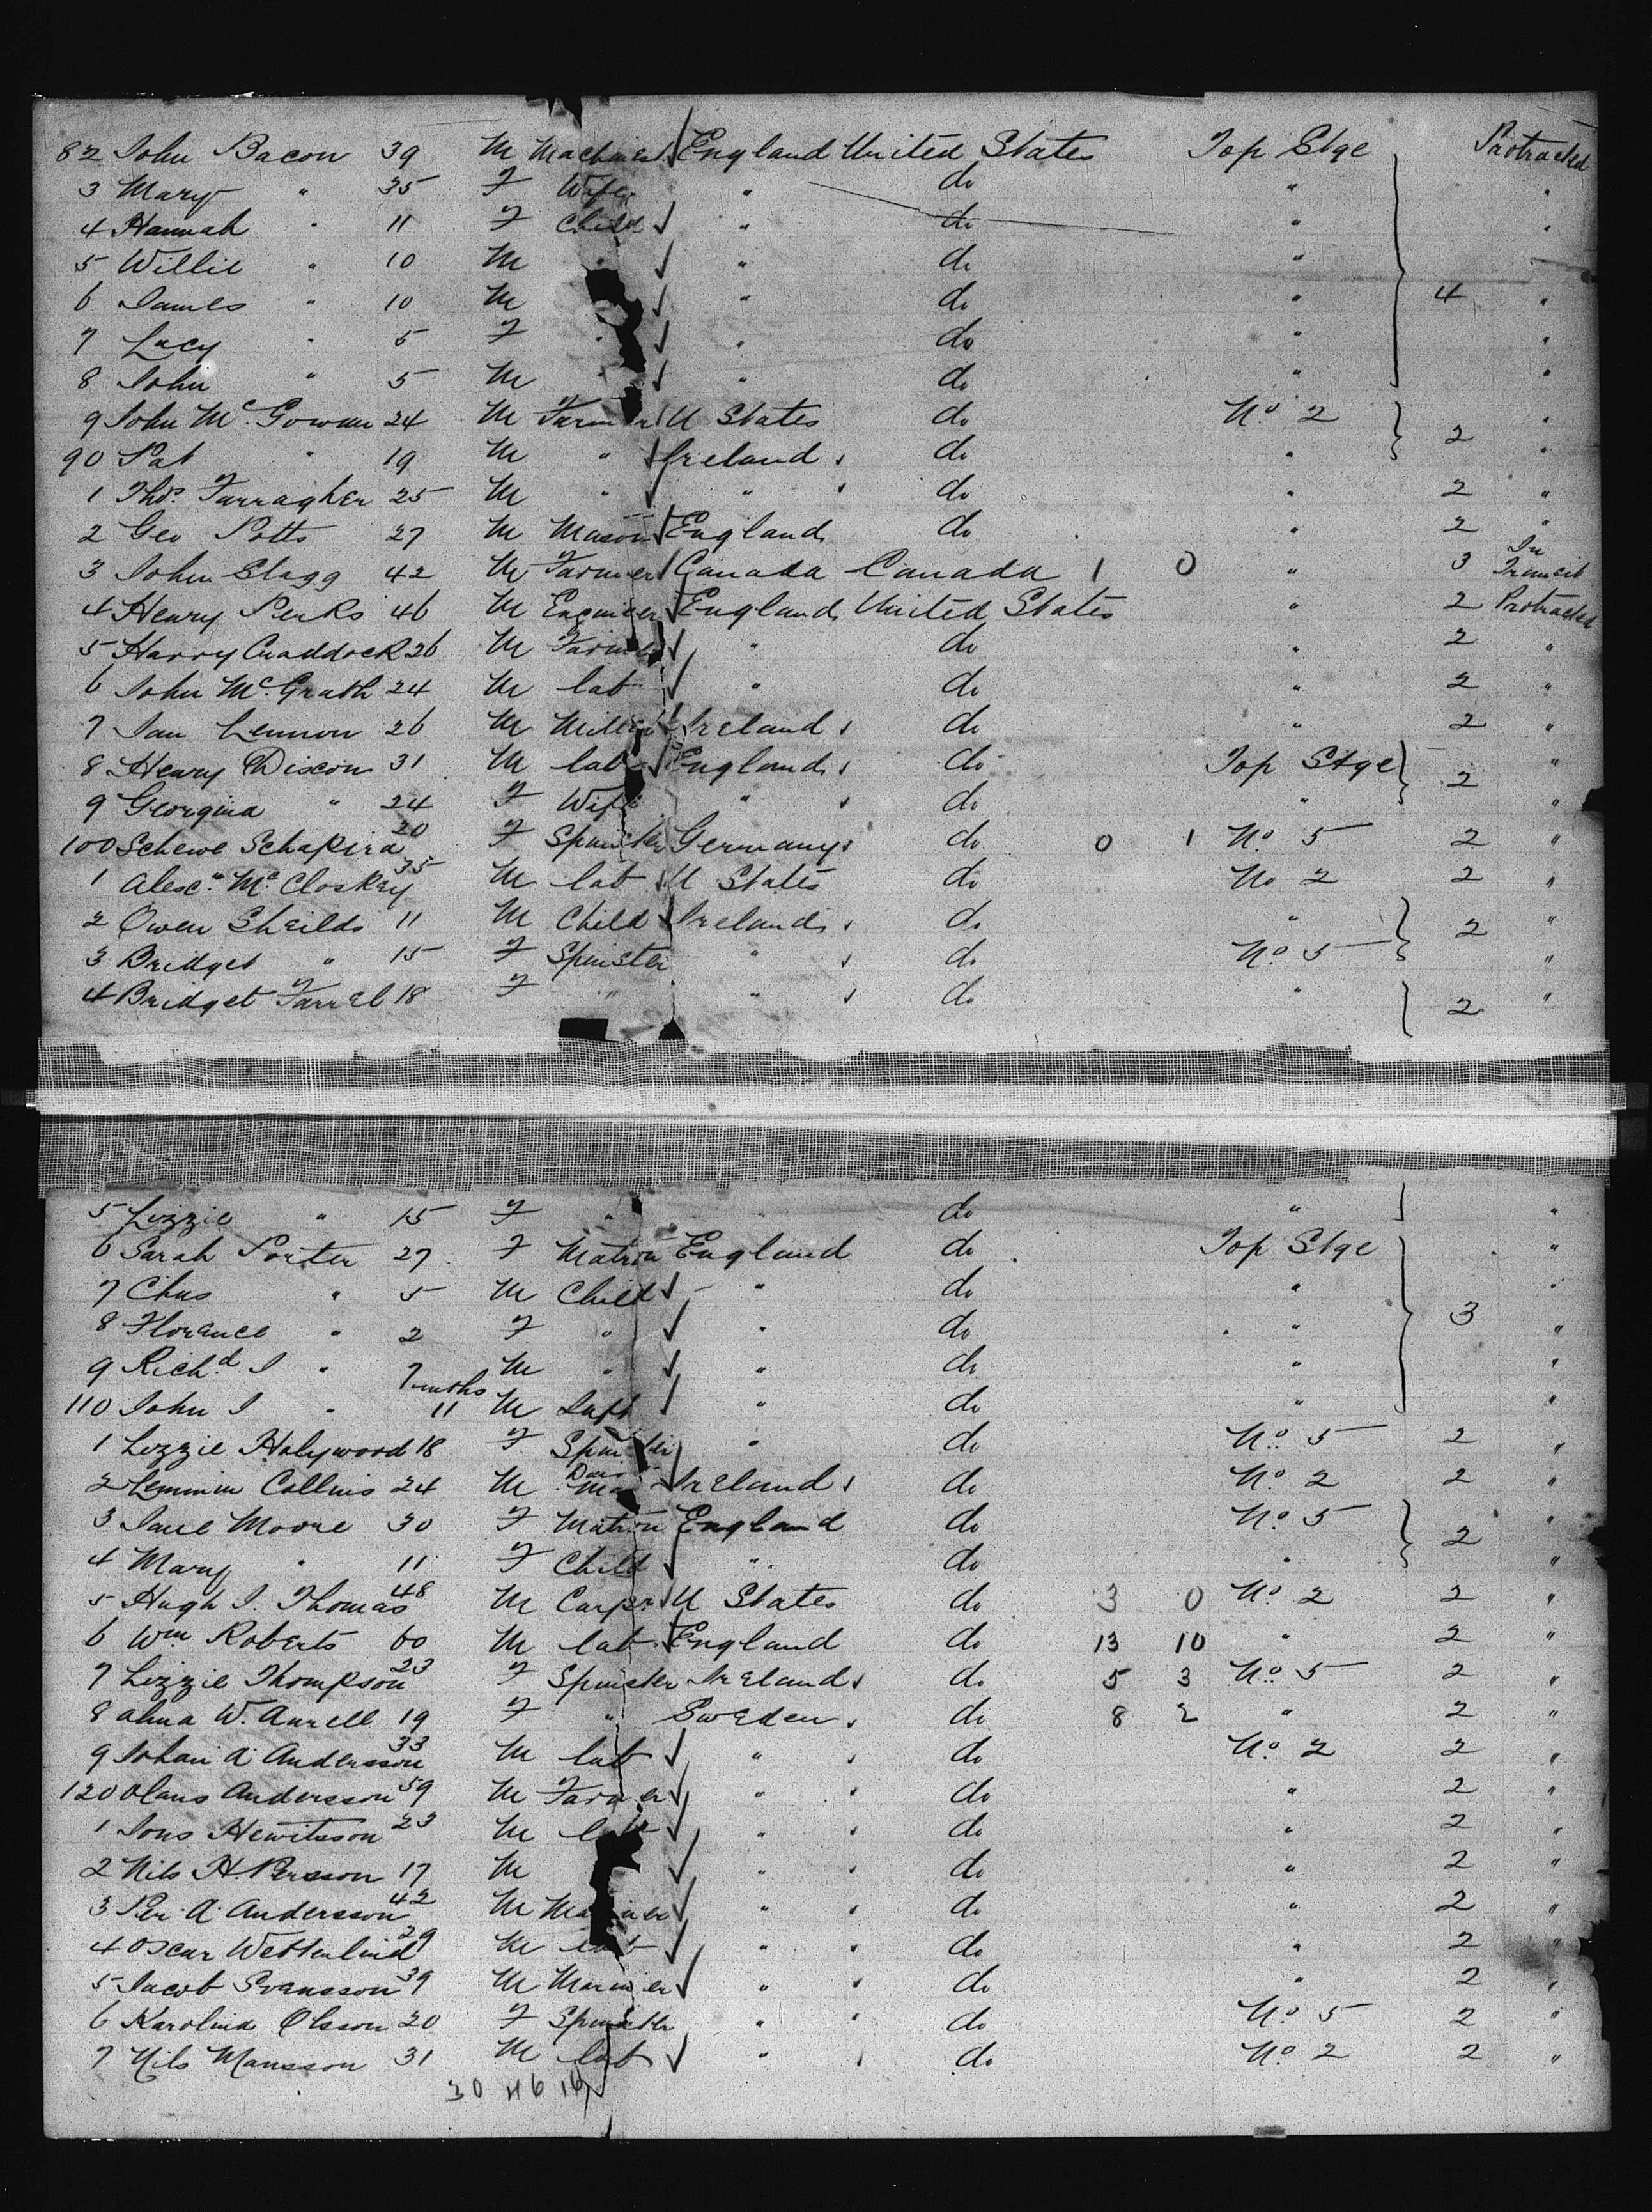 82 John Bacon 39 M Machinist England United States Top Stge Protracted
3 Mary " 35 F Wife " do " "
4 Hannah " 11 F Child " do " "
5 Willie " 10 M " do "
6 James " 10 M " do " 4 "
7 Lucy " 5 F " " do " "
8 John " 5 M " do " "
9 John Mc Gowan 24 M Farmer U States do No 2 "
90 Pat " 19 M " Ireland do " 2 "
1 Thos Farragher 25 M " " do " 2 "
2 Geo Potts 27 M Mason England do " 2 "
3 John Stagg 42 M Farmer Canada Canada 1 0 " 3 In Transit
4 Henry Perks 46 M Engineer England United States " 2 Protracted
5 Harry Craddock 26 M Farmer " do " 2 "
6 John Mc Grath 24 M lab " do " 2 "
7 Jas Lennon 26 M Miller Ireland do " 2 "
8 Henry Dixon 31 M lab England do Top Stge 2 "
9 Georgina " 24 F Wife " do " "
100 Schewe Schapira 20 F Spinster Germany do 0 1 No 5 2 "
1 Alexr Mc Closkey 35 M lab U States do No 2 2 "
2 Owen Sheilds 11 M Child Ireland do " 2 "
3 Bridget " 15 F Spinster " do No 5 "
4 Bridget Farrel 18 F " " do " 2 "
5 Lizzie " 15 F " do " "
6 Sarah Porter 27 F Matron England do Top Stge "
7 Chas " 5 M Child " do " "
8 Florence " 2 F " " do " 3 "
9 Richd J " 7 mths M " " do " "
110 John J " 11 M Inft " do " "
1 Lizzie Holywood 18 F Spinster " do No 5 2 "
2 Collins 24 M Ireland do No 2 2 "
3 Jane Moore 30 F Matron England do No 5 2 "
4 Mary " 11 F Child " do " "
5 Hugh J. Thomas 48 M Carpr U States do 3 0 No 2 2 "
6 Wm Roberts 60 M lab England do 13 10 " 2 "
7 Lizzie Thompson 23 F Spinster Ireland do 5 3 No 5 2 "
8 Alma W. Aurell 19 F " Sweden do 8 2 " 2 "
9 Johan A Andersson 33 M lab " do No 2 2 "
120 Olaus Andersson 59 M Farmer " do " 2 "
1 Jons Hewitsson 23 M lab " do " 2 "
2 Nils H. Persson 17 M " do " 2 "
3 Per A Andersson 42 M Mariner " do " 2 "
4 Oscar Wetterlind 29 M lab " do " 2 "
5 Jacob Svensson 39 M Mariner " do " 2 "
6 Karolina Olsson 20 F Spinster " do No 5 2 "
7 Nils Mansson 31 M lab " do No 2 2 "
30 46 16